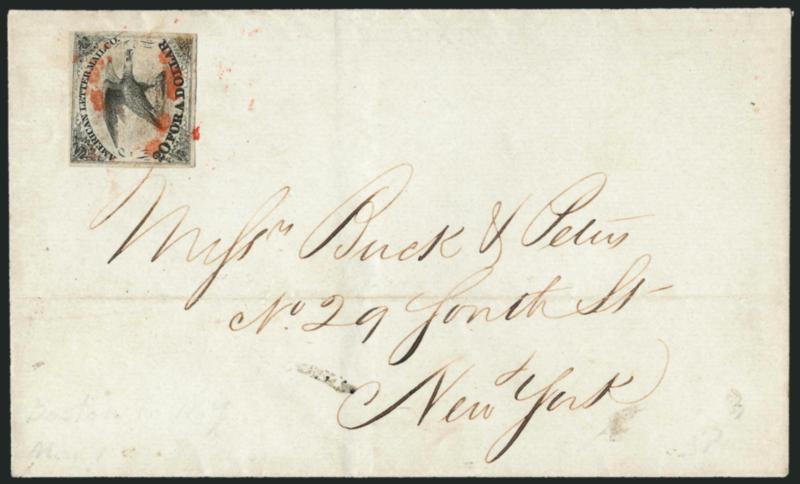 AMERICAN LETTER MAIL CO.
20 FOR A DOLLAR
Messrs Buck & Peters
No 29 South St
New York
Boston